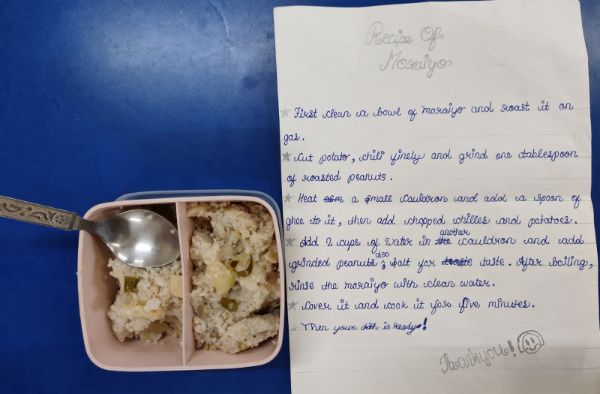 Recipe Of
Moraiyo
★ First clean a bowl of moraiyo and roast it on
gas.
★ Cut potato, chili finely and grind one tablespoon
of roasted peanuts.
★ Heat a small cauldron and add a spoon of
ghee to it, then add chopped chillies and potatoes.
★ Add 2 cups of water in another cauldron and add
grinded peanuts also, salt for taste. After boiling,
rinse the moraiyo with clean water.
★ Cover it and cook it for five minutes.
★ Then your dish is ready!
Thankyou!